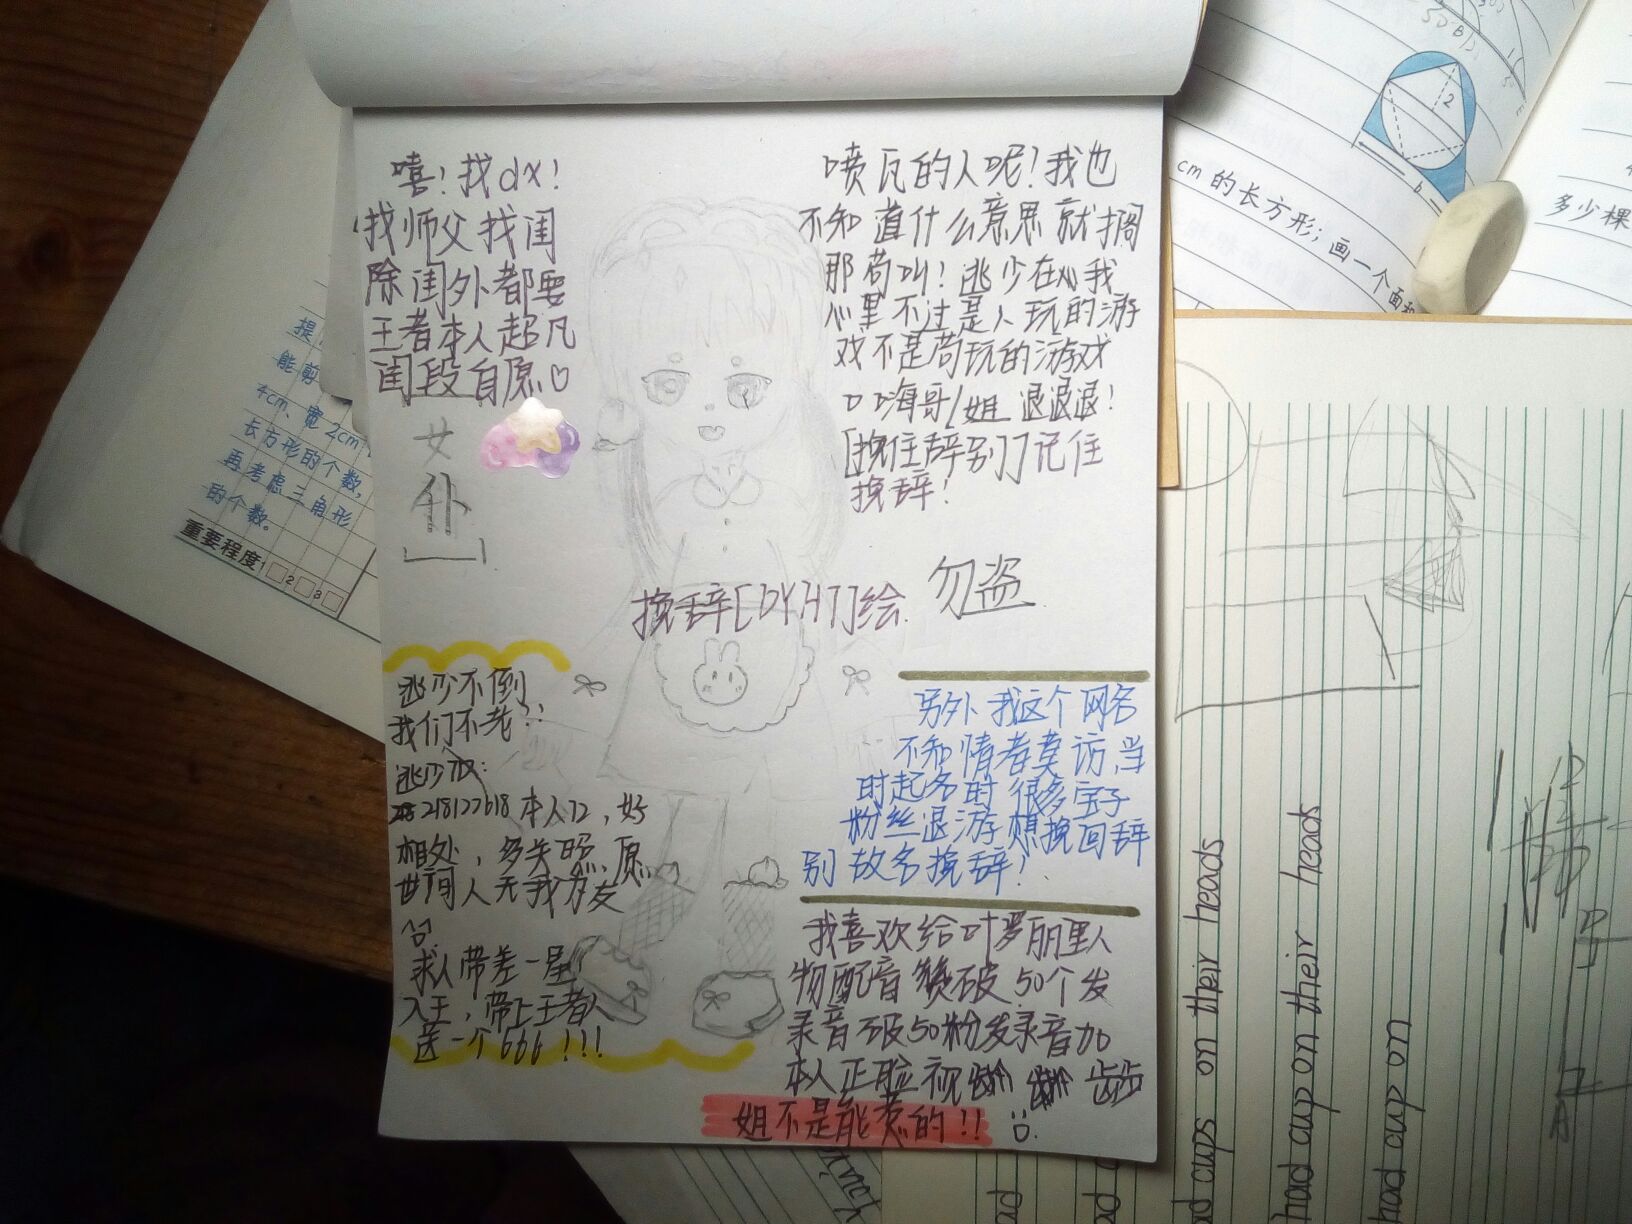 嘻！找dx！
找师父找闺
除闺外都要
王者本人超凡
闺段自愿
女
仆
喷瓦的人呢！我也
不知道什么意思就搁
那苟叫！逃少在心我
心里不过是人玩的游
戏不是苟玩的游戏
口嗨哥/姐 退退退！
[挽住辞别]记住
挽辞！
挽辞[DYH7]绘
勿盗
逃少不倒
我们不老
逃少
218127618 本人12，好
相处，多关照，愿
世间人无我万友
求人带差一星
入王，带上王者
送一个666！！！
另外我这个网名
不知情者莫访，当
时起名时很多宝子
粉丝退游想挽回辞
别故名挽辞！
我喜欢给叶罗丽里人
物配音 赞破50个发
录音 破50粉发录音加
本人正脸视
姐不是能惹的！！
提
能剪
4cm、宽2cm
长方形的个数，
再考虑三角形
的个数。
重要程度 1□ 2□ 3□
2
b
cm的长方形；画一个面积
多少棵
ad cups on their heads
had cup on their heads
had cup on